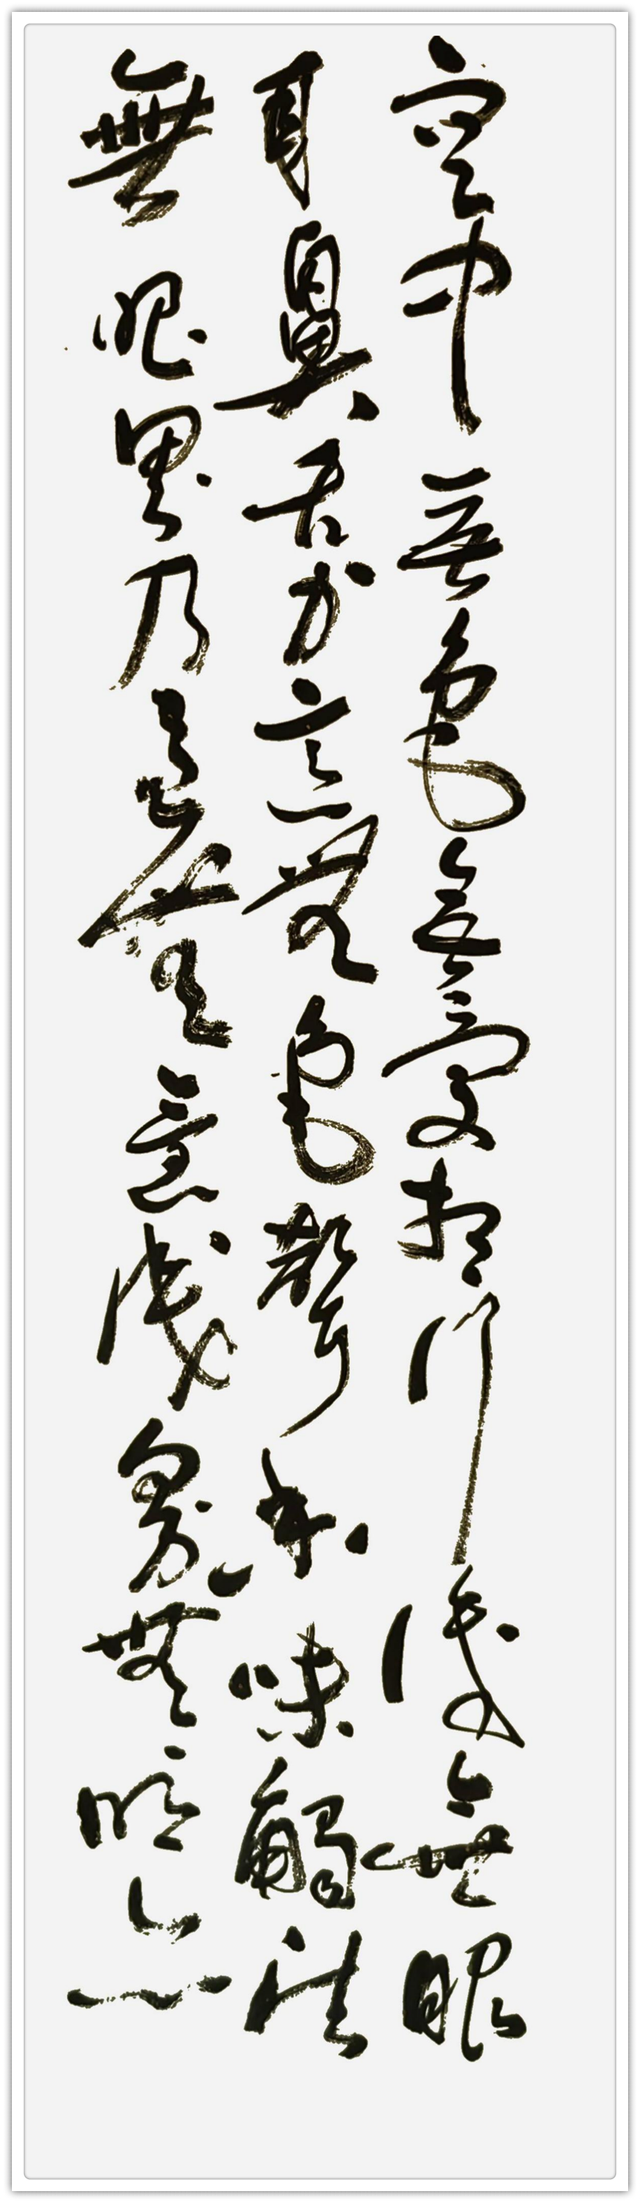 空中無色無受想行識無眼
耳鼻舌身意無色聲香味觸法
無眼界乃至無意識界無明亦